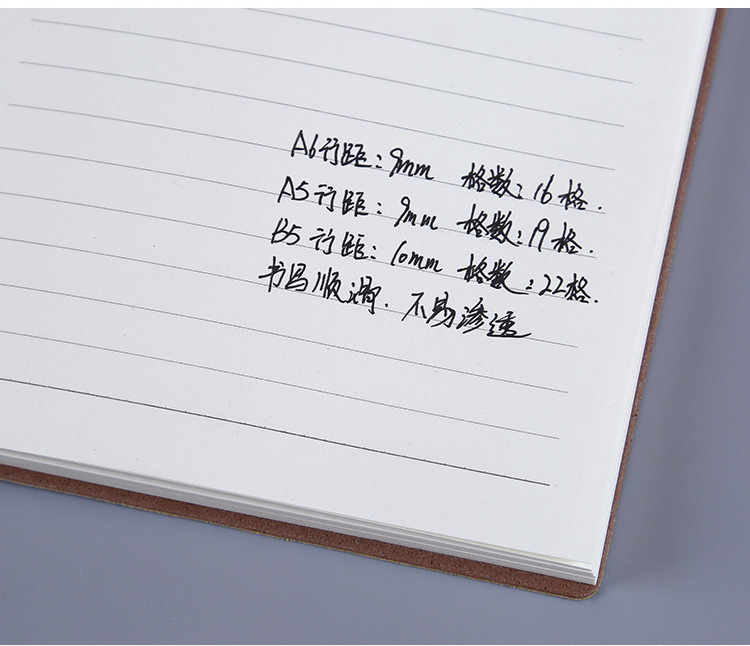 A6行距:9mm 格数:16格.
A5行距:9mm 格数:19格.
B5行距:10mm 格数:22格.
书写顺滑.不易渗透